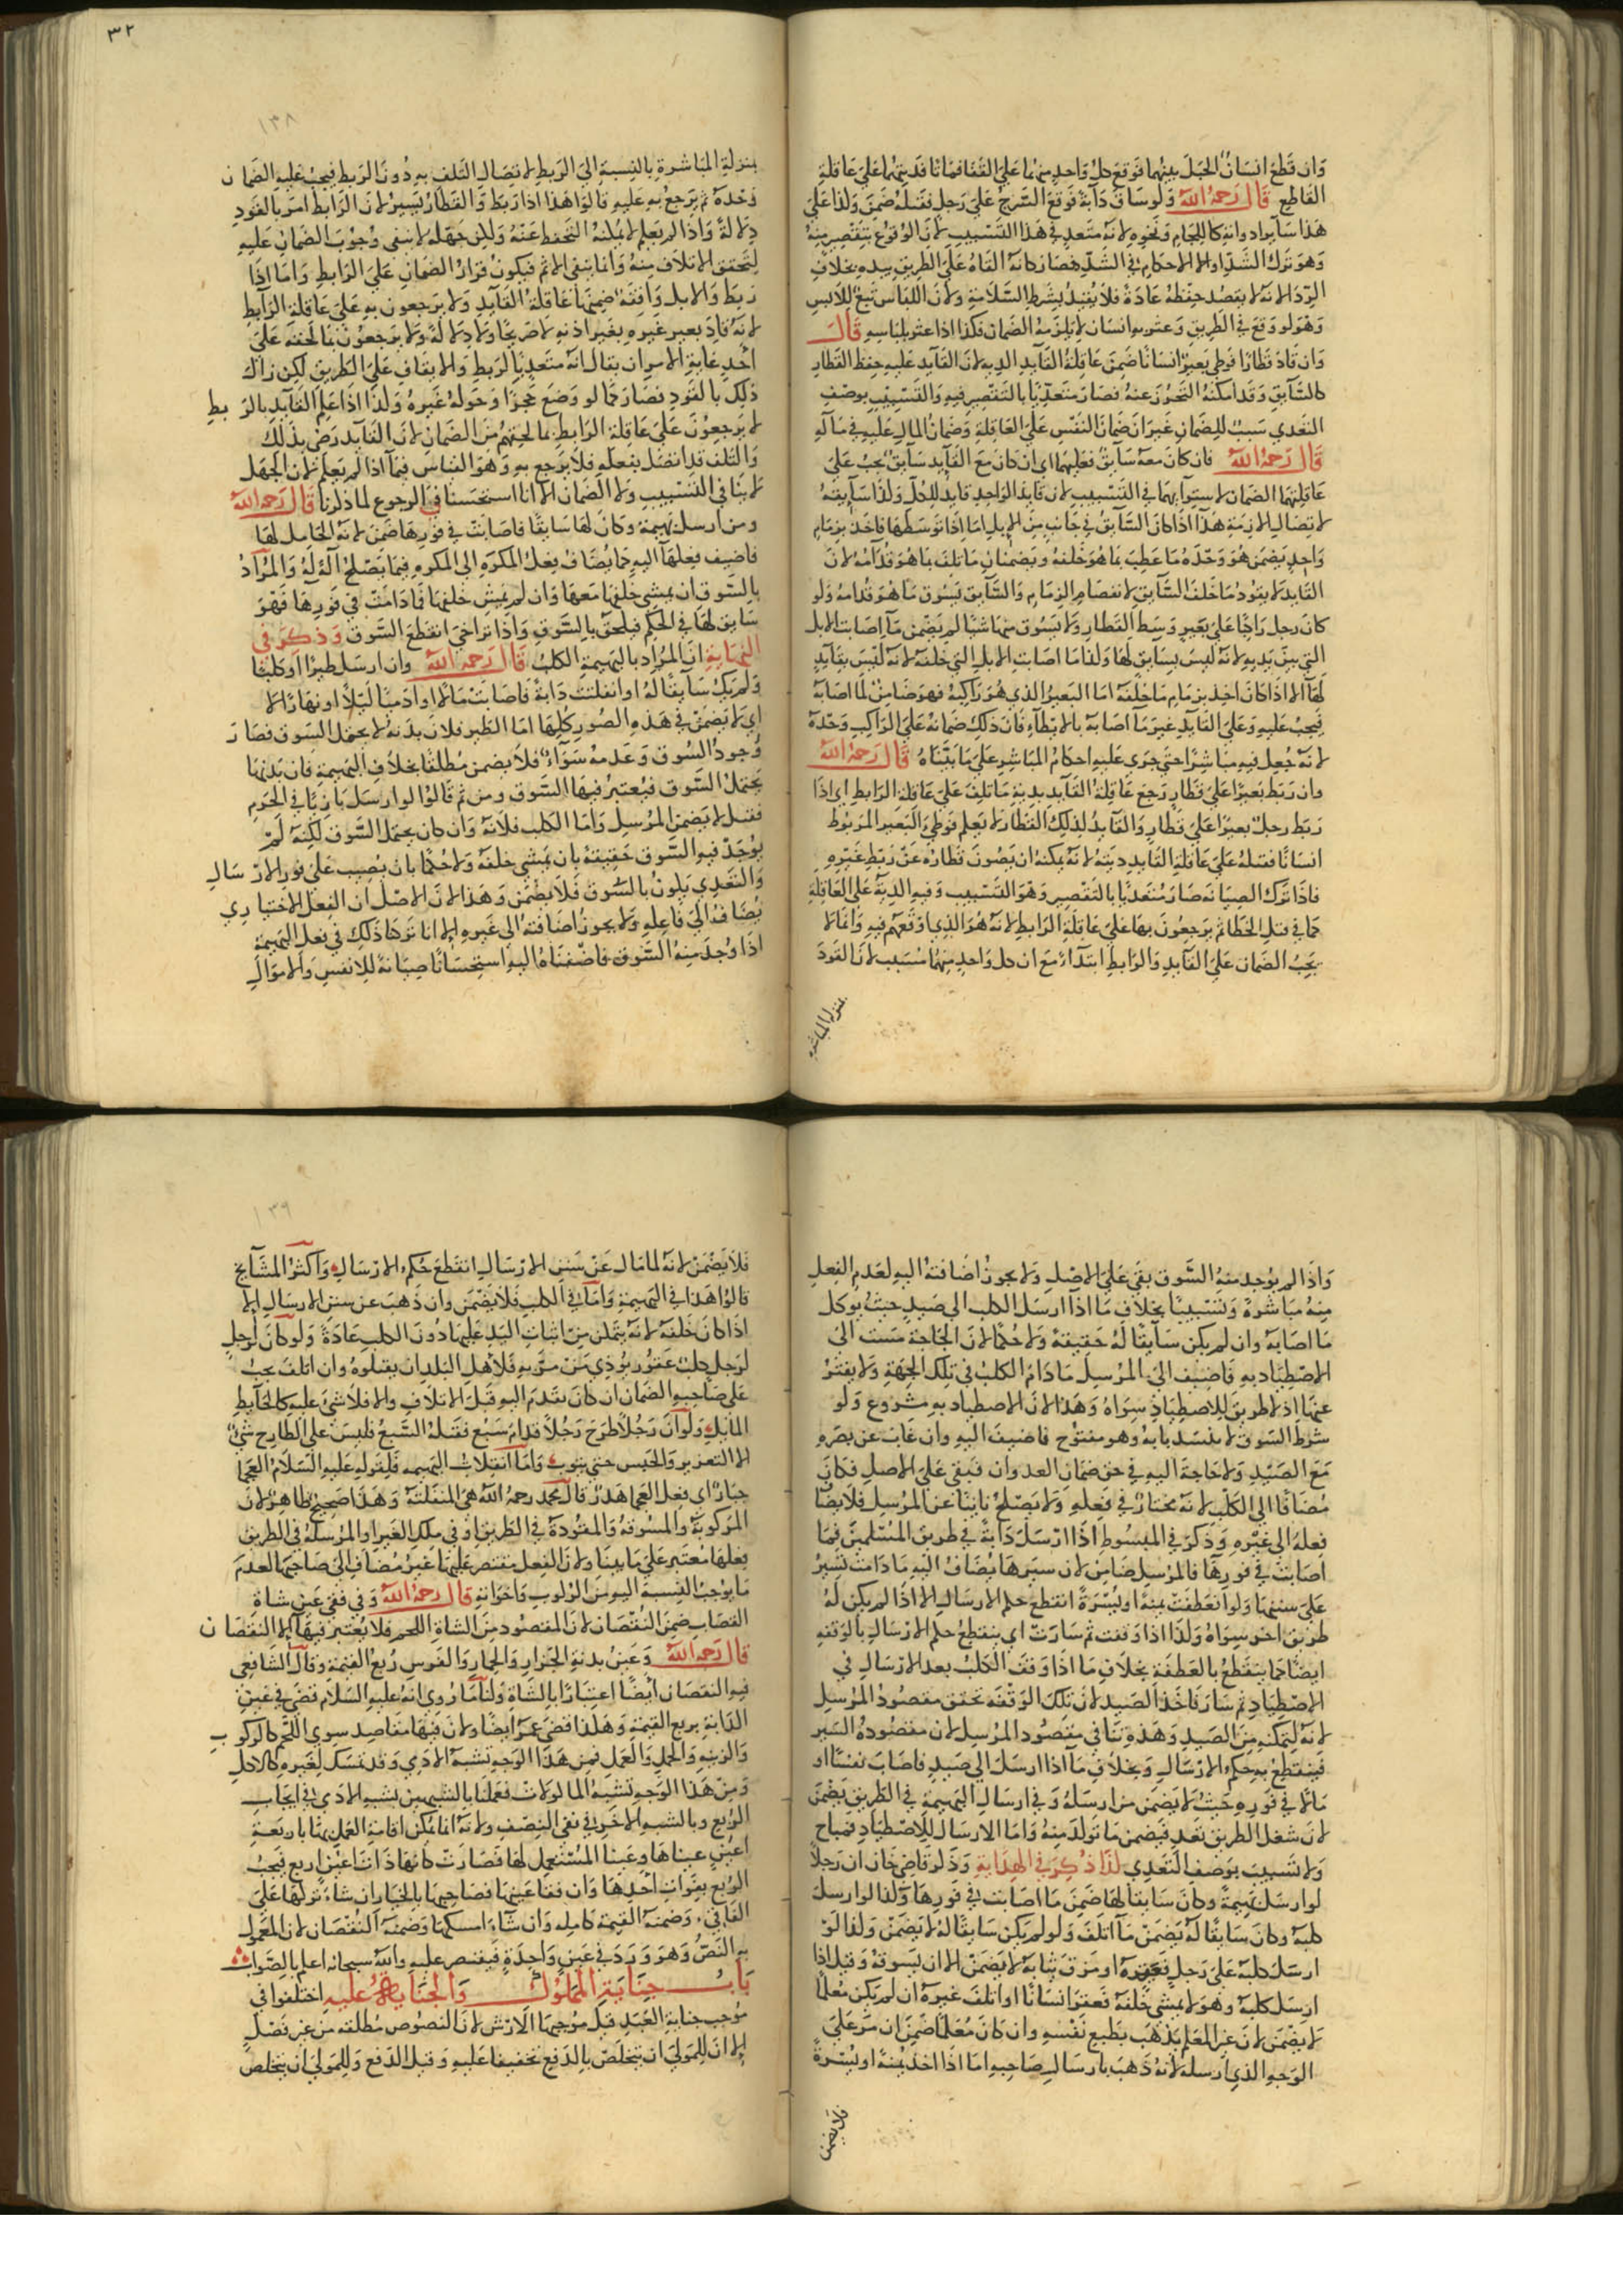 وان قطع انسان الحبل بينهما فوقع كل واحد منهما على القفا فماتا فديتهما على عاقلة
القاطع قال رحمه الله ولو ساق دابة فوقع السرج على رجل فقتله ضمن ولذا على
هذا ساير ادواته كاللجام ونحوه لانه متعد في هذا التسبيب لان الوقوع بتقصير منه
وهو ترك الشد او الاحكام في الشد فصار كانه القاه على الطريق بيده بخلاف
الردا لانه لا يقصد حفظه عادة فلا يقيد بشرط السلامة ولان اللباس تبع للابس
وهو لو وقع في الطريق وعثر به انسان لا يلزمه الضمان فكذا اذا عثر بلباسه قال
وان قاد قطارا فوطي بعير انسانا ضمن عاقلة القايد الدية لان القايد عليه حفظ القطار
كالسايق وقد امكنه التحرز عنه فصار متعديا بالتقصير فيه والتسبيب بوصف
التعدي سبب للضمان غير ان ضمان النفس على العاقلة وضمان المال عليه في ماله
قال رحمه الله فان كان معه سايق فعليهما اي ان كان مع القايد سايق يجب على
عاقلتهما الضمان لاستوايهما في التسبيب لان قايد الواحد قايد للكل ولذا سايقه
لاتصال الازمة هذا اذا كان السايق في جانب من الابل اما اذا توسطها فاخذ بزمام
واحد يضمن هو وحده ما عطب بما هو خلفه ويضمنان ما تلف بما هو قدامه لان
القايد لا يقود ما خلف السايق لانفصام الزمام والسايق يسوق ما هو قدامه ولو
كان رجل راكبا على بعير وسط القطار ولا يسوق منها شيا لم يضمن ما اصابت الابل
التي بين يديه لانه ليس بسايق لها وكذا ما اصابت الابل التي خلفه لانه ليس بقايد
لها الا اذا كان اخذ بزمام ما خلفه اما البعير الذي هو راكبه فهو ضامن لما اصابه
فيجب عليه وعلى القايد غير ما اصابه بالايطاء فان ذلك ضمانه على الراكب وحده
لانه جعل فيه مباشرا حتى جرى عليه احكام المباشر على ما بيناه قال رحمه الله
وان ربط بعيرا على قطار رجع عاقلة القايد بدية ما تلف على عاقلة الرابط اي اذا
ربط رجل بعيرا على قطار والقايد لذلك القطار لا يعلم فوطي البعير المربوط
انسانا فقتله على عاقلة القايد ديته لانه يمكنه ان يصون قطاره عن ربط غيره
فاذا ترك الصيانه صار متعديا بالتقصير وهو التسبيب وفيه الدية على العاقلة
كما في قتل الخطا ثم يرجعون بها على عاقلة الرابط لانه هو الذي اوقعهم فيه وانما لا
يجب الضمان على القايد والرابط ابتداء مع ان كل واحد منهما مسبب لان القود
بمنزلة المباشرة
٣٢
١٣٨
بمنزلة المباشرة بالنسبة الى الربط لاتصال التلف به دون الربط فيجب عليه الضمان
وحده ثم يرجع به عليه قالوا هذا اذا ربط والقطار يسير لان الرابط امر بالقود
دلالة واذا لم يعلم لا يمكنه التحفظ عنه ولكن جهله لا ينفي وجوب الضمان عليه
لتحقق الاتلاف منه وانما ينفي الاثم فيكون قرار الضمان على الرابط واما اذا
ربط والابل واقفة ضمنها عاقلة القايد ولا يرجعون به على عاقلة الرابط
لانه قاد بعير غيره بغير اذنه لا صريحا ولا دلالة ولا يرجعون بما لحقه على
احد غاية الامر ان يقال انه متعد بالربط والايقاف على الطريق لكن زال
ذلك بالقود فصار كما لو وضع حجرا وحوله غيره ولذا اذا علم القايد بالربط
لا يرجعون على عاقلة الرابط بما لحقهم من الضمان لان القايد رضي بذلك
والتلف قد اتصل بفعله فلا يرجع به وهو القياس فيما اذا لم يعلم لان الجهل
لا ينافي التسبيب ولا الضمان الا انا استحسنا في الرجوع لما ذكرنا قال رحمه الله
ومن ارسل بهيمة وكان لها سايقا فاصابت في فورها ضمن لانه الحامل لها
فاضيف فعلها اليه كما يضاف فعل المكره الى المكره فيما يصلح آلة له والمراد
بالسوق ان يمشي خلفها معها وان لم يمش خلفها فما دامت في فورها فهو
سايق لها في الحكم فيلحق بالسوق واذا تراخى انقطع السوق وذكر في
النهاية ان المراد بالبهيمة الكلب قال رحمه الله وان ارسل طيرا او كلبا
ولم يك سايقا له او انفلتت دابة فاصابت مالا او ادميا ليلا او نهارا لا
اي لا يضمن في هذه الصور كلها اما الطير فلان بدنه لا يحتمل السوق فصار
وجود السوق وعدمه سواء فلا يضمن مطلقا بخلاف البهيمة فان بدنها
يحتمل السوق فيعتبر فيها السوق ومن ثم قالوا لو ارسل بازيا في الحرم
فقتل لا يضمن المرسل واما الكلب فلانه وان كان يحتمل السوق لكنه لم
يوجد فيه السوق حقيقة بان يمشي خلفه ولا حكما بان يصيب على فور الارسال
والتعدي يكون بالسوق فلا يضمن وهذا لان الاصل ان الفعل الاختياري
يضاف الى فاعله ولا يجوز اضافته الى غيره الا انا تركنا ذلك في فعل البهيمة
اذا وجد منه السوق فاضفناه اليه استحسانا صيانة للانفس والاموال
واذا لم يوجد منه السوق بقي على الاصل ولا يجوز اضافته اليه لعدم الفعل
منه مباشرة وتسبيبا بخلاف ما اذا ارسل الكلب الى صيد حيث يوكل
ما اصابه وان لم يكن سايقا له حقيقة ولا حكما لان الحاجة مست الى
الاصطياد به فاضيف الى المرسل ما دام الكلب في تلك الجهة ولا يفتر
عنها اذ لا طريق للاصطياد سواه وهذا لان الاصطياد به مشروع ولو
شرط السوق لانسد بابه وهو مفتوح فاضيف اليه وان غاب عن بصره
مع الصيد ولا حاجة اليه في حق ضمان العدوان فبقي على الاصل فكان
مضافا الى الكلب لانه مختار في فعله ولا يصلح نايبا عن المرسل فلا يضاف
فعله الى غيره وذكر في المبسوط اذا ارسل دابة في طريق المسلمين فما
اصابت في فورها فالمرسل ضامن لان سيرها يضاف اليه ما دامت تسير
على سننها ولو انعطفت يمنة او يسرة انقطع حكم الارسال الا اذا لم يكن له
طريق اخر سواه ولذا اذا وقفت ثم سارت اي ينقطع حكم الارسال بالوقفة
ايضا كما ينقطع بالعطفة بخلاف ما اذا وقف الكلب بعد الارسال في
الاصطياد ثم سار فاخذ الصيد لان تلك الوقفة تحقق مقصود المرسل
لانه لتمكنه من الصيد وهذه تنافي مقصود المرسل لان مقصوده السير
فينقطع به حكم الارسال وبخلاف ما اذا ارسل الى صيد فاصاب نفسا او
مالا في فوره حيث لا يضمن من ارسله وفي ارسال البهيمة في الطريق يضمن
لان شغل الطريق تعد فيضمن ما تولد منه واما الارسال للاصطياد فمباح
ولا تسبيب بوصف التعدي لذا ذكر في الهداية وذكر قاضي خان ان رجلا
لو ارسل بهيمة وكان سايقا لها ضمن ما اصابت في فورها ولذا لو ارسل
كلبه وكان سايقا له يضمن ما اتلف ولو لم يكن سايقا له لا يضمن ولذا لو
ارسل كلبه على رجل فعقره او مزق ثيابه لا يضمن الا ان يسوقه وقيل اذا
ارسل كلبه وهو لا يمشي خلفه فعقر انسانا او اتلف غيره ان لم يكن معلما
لا يضمن لان غير المعلم يذهب بطبع نفسه وان كان معلما ضمن ان مر على
الوجه الذي ارسله لانه ذهب بارسال صاحبه اما اذا اخذ يمنة او يسرة
فلا يضمن
١٣٩
فلا يضمن لانه لما مال عن سنن الارسال انقطع حكم الارسال واكثر المشايخ
قالوا هذا في البهيمة واما في الكلب فلا يضمن وان ذهب عن سنن الارسال الا
اذا كان خلفه لانه يتمكن من اثبات اليد عليها دون الكلب عادة ولو كان لرجل
لرجل كلب عقور يوذي من مر به فلاهل البلد ان يقتلوه وان اتلف يجب
على صاحبه الضمان ان كان تقدم اليه قبل الاتلاف والا فلا شيء عليه كالحايط
المايل ولو ان رجلا طرح رجلا قدام سبع فقتله السبع فليس على الطارح شي
الا التعزير والحبس حتى يتوب واما انفلات البهيمه فلقوله عليه السلام العجما
جبار اي فعل العجما هدر قال محمد رحمه الله هي المنفلتة وهذا صحيح ظاهر لان
المركوبة والمسوقة والمقودة في الطريق او في ملك الغير او المرسلة في الطريق
فعلها معتبر على ما بينا ولان الفعل مقتصر عليها غير مضاف الى صاحبها لعدم
ما يوجب النسبة اليه من الركوب واخواته قال رحمه الله وفي فقي عين شاة
القصاب ضمن النقصان لان المقصود من الشاة اللحم فلا يعتبر فيها الا النقصان
قال رحمه الله وعين بدنة الجزار والحمار والفرس ربع القيمة وقال الشافعي
فيه النقصان ايضا اعتبارا بالشاة ولنا ما روي انه عليه السلام قضى في عين
الدابة بربع القيمة وهكذا قضى عمر ايضا ولان فيها مقاصد سوى اللحم كالركوب
والزينة والحمل والعمل فمن هذا الوجه تشبه الادمي وقد تمسك لغيره كالاكل
ومن هذا الوجه تشبه الماكولات فعملنا بالشبهين بشبه الادمي في ايجاب
الربع وبالشبه الاخر في نفي النصف ولانه انما يمكن اقامة العمل بها باربعة
اعين عيناها وعينا المستعمل لها فصارت كانها ذات اعين اربع فيجب
الربع بفوات احدها وان فقا عينيها فصاحبها بالخيار ان شاء تركها على
الفاقي وضمنه القيمة كامله وان شاء امسكها وضمنه النقصان لان المعمول
به النص وهو ورد في عين واحدة فيقتصر عليه والله سبحانه اعلم بالصواب
باب جناية المملوك والجناية عليه اختلفوا في
موجب جناية العبد قيل موجبها الارش لان النصوص مطلقه من غير فصل
الا ان للمولى ان يتخلص بالدفع تخفيفا عليه وقيل الدفع وللمولى ان يتخلص